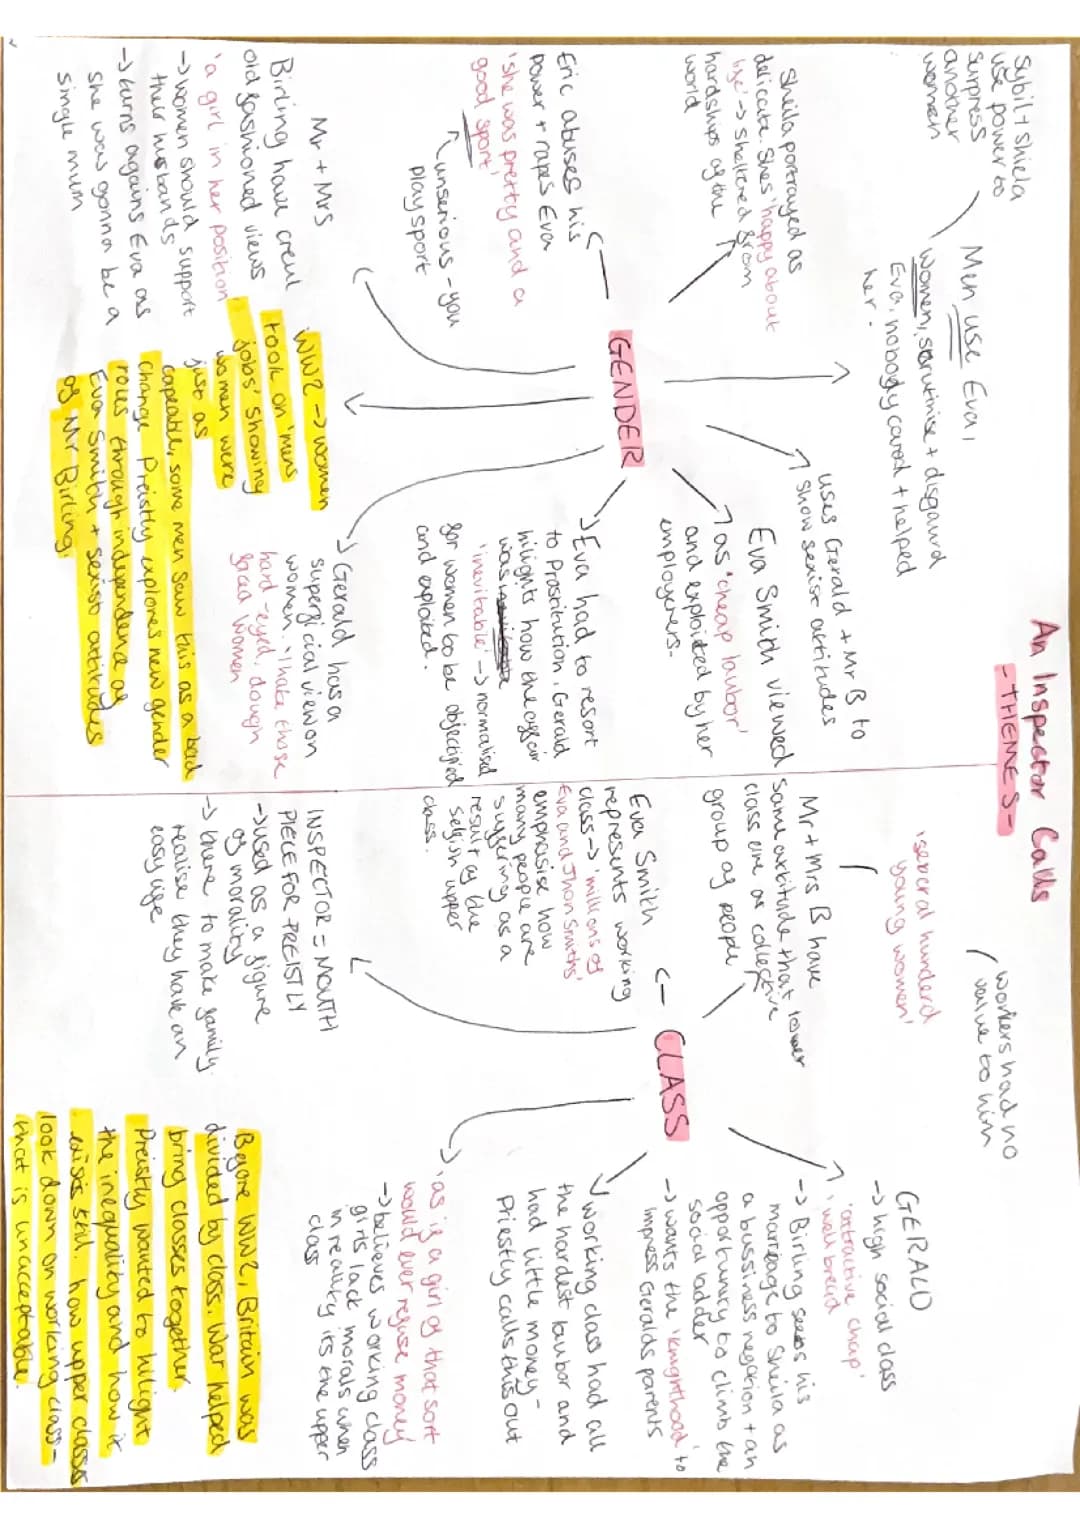 An Inspector Calls
- THEMES -
GENDER
Sybil + shiela
use power to
surpress
another
women
Men use Eva,
women, scrutinise + disgaurd
Eva, nobody cared + helped
her.
Sheila portrayed as
delicate. She's 'happy about
life' -> sheltered from
hardships of the
world
Eric abuses his
power + rapes Eva
'she was pretty and a
good sport'
unserious - you
play sport
Mr + Mrs
Birling have creul
old fashioned views
'a girl in her position'
-> women should support
their husbands
-> turns agains Eva as
she was gonna be a
single mum
WW2 -> women
took on 'mens
jobs' showing
women were
just as
capeable, some men saw this as a bad
change. Preistly explores new gender
roles through independence of
Eva Smith + sexist attitudes
of Mr Birling.
Gerald has a
superficial view on
women. 'I hate those
hard-eyed, dough
faced women
Eva had to resort
to Prostitution, Gerald
hilights how the affair
was
'inevitable' -> normalised
for women to be objectified
and exploited.
Eva Smith viewed
as 'cheap laubor'
and exploited by her
employers.
uses Gerald + Mr B to
show sexist attitudes
CLASS
workers had no
value to him
'several hunderd
young women'
Mr + Mrs B have
same attitude that lower
class are a collective
group of people
Eva Smith
represents working
class -> 'millions of
Eva and Jhon Smiths'
emphasise how
many people are
suffering as a
result of the
selfish upper
class.
INSPECTOR = MOUTH
PIECE FOR PREISTLY
-> used as a figure
of morality
-> there to make family
realise they have an
easy life
GERALD
-> high social class
'attractive chap'
'well bread
-> Birling sees his
marreage to Sheila as
a bussiness negotion + an
opportunity to climb the
social ladder
-> wants the 'knighthood' to
impress Geralds parents
working class had all
the hardest laubor and
had little money -
Priestly calls this out
'as if a girl of that sort
would ever refuse money'
-> believes working class
girls lack morals when
in reality its the upper
class
Before WW2, Britain was
divided by class. War helped
bring classes together.
Preistly wanted to hilight
the inequality and how it
exists still. how upper classes
look down on working class -
that is unacceptable.